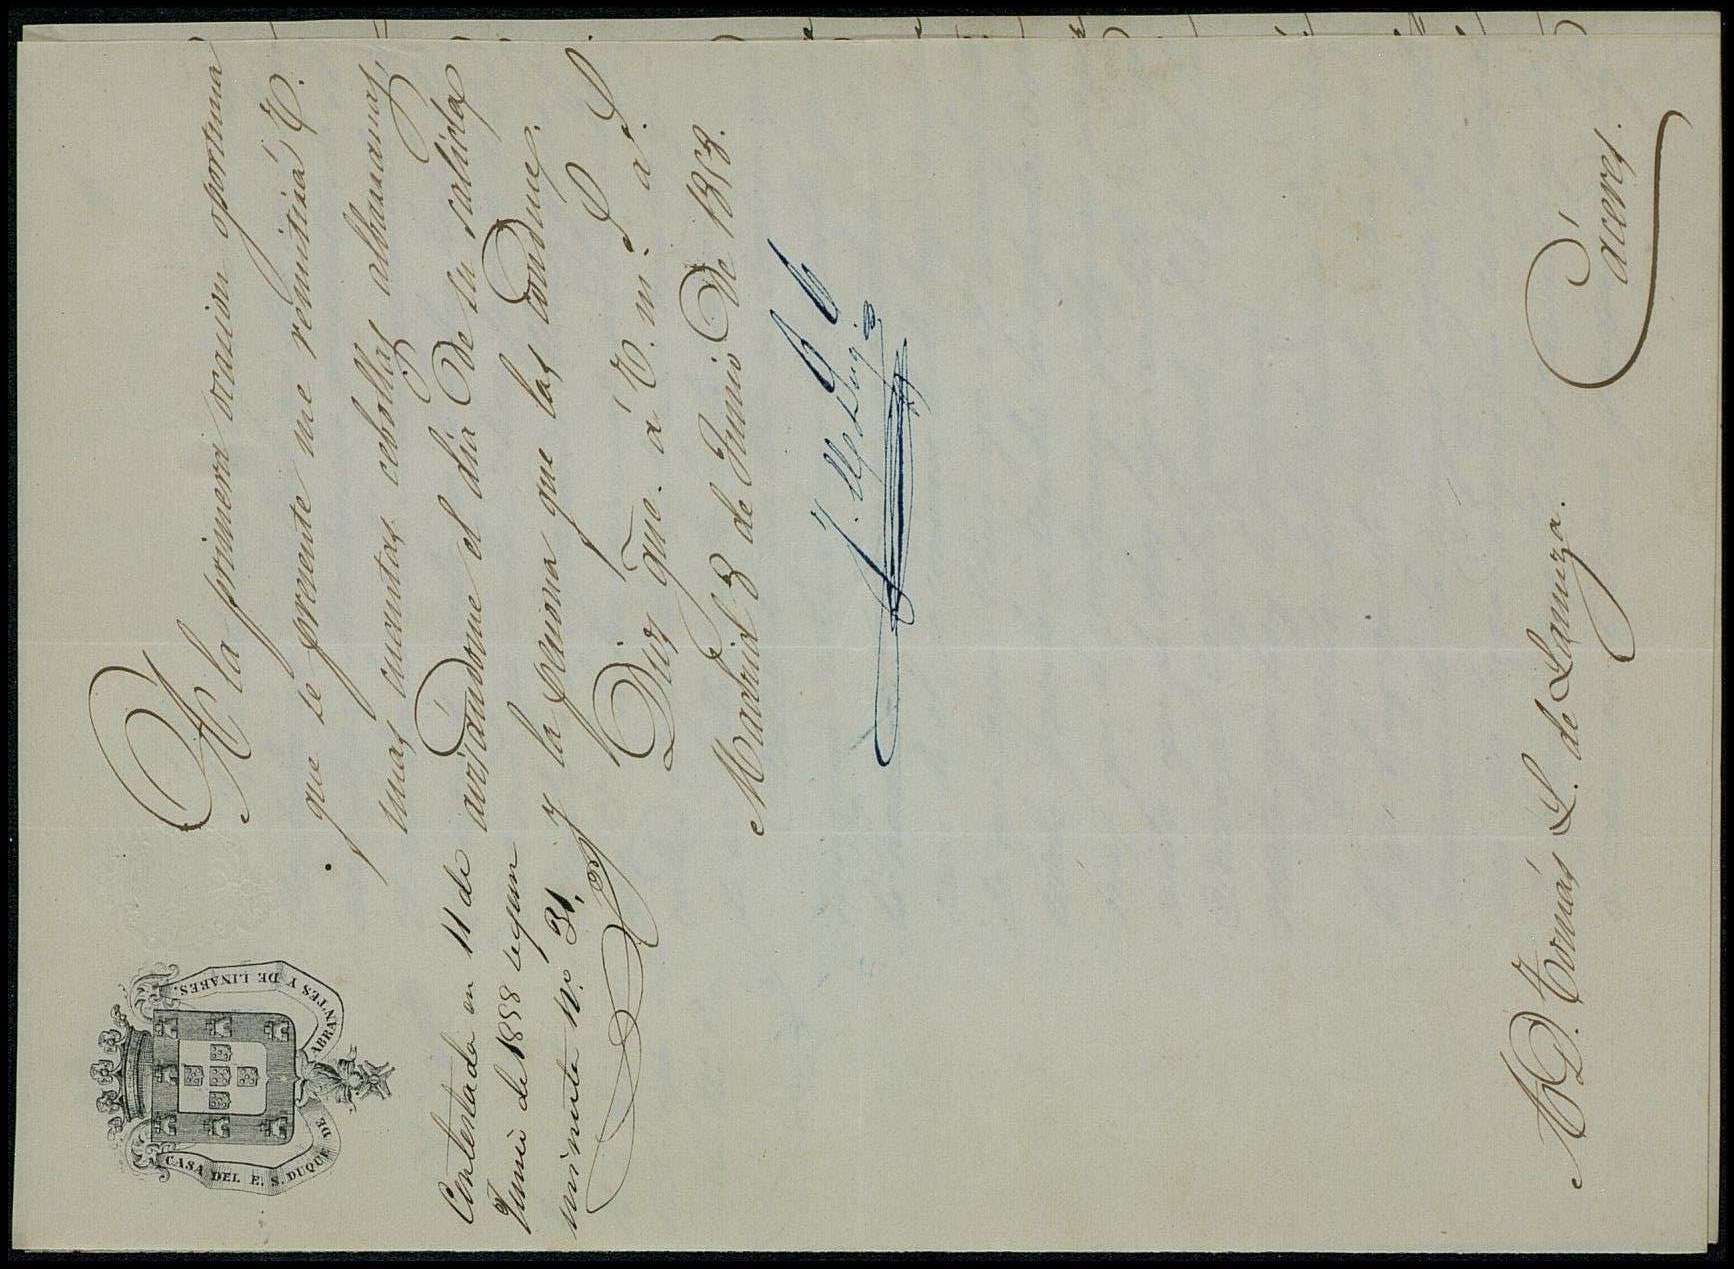 CASA DEL E. S. DUQUE DE ABRANTES Y DE LINARES.
A la primera ocasion oportuna
que se presente me remitirá V.
unas cuantas cebollas albarranas,
avisándome el dia de su salida
y la persona que las conduce.
Dios gue. á V. m. s. a.
Madrid 8 de Junio de 1858.
Contestada en 11 de
Junio de 1858 segun
minuta N.º 31.
A D. Tomás L. de Lanuza.
Cáceres.